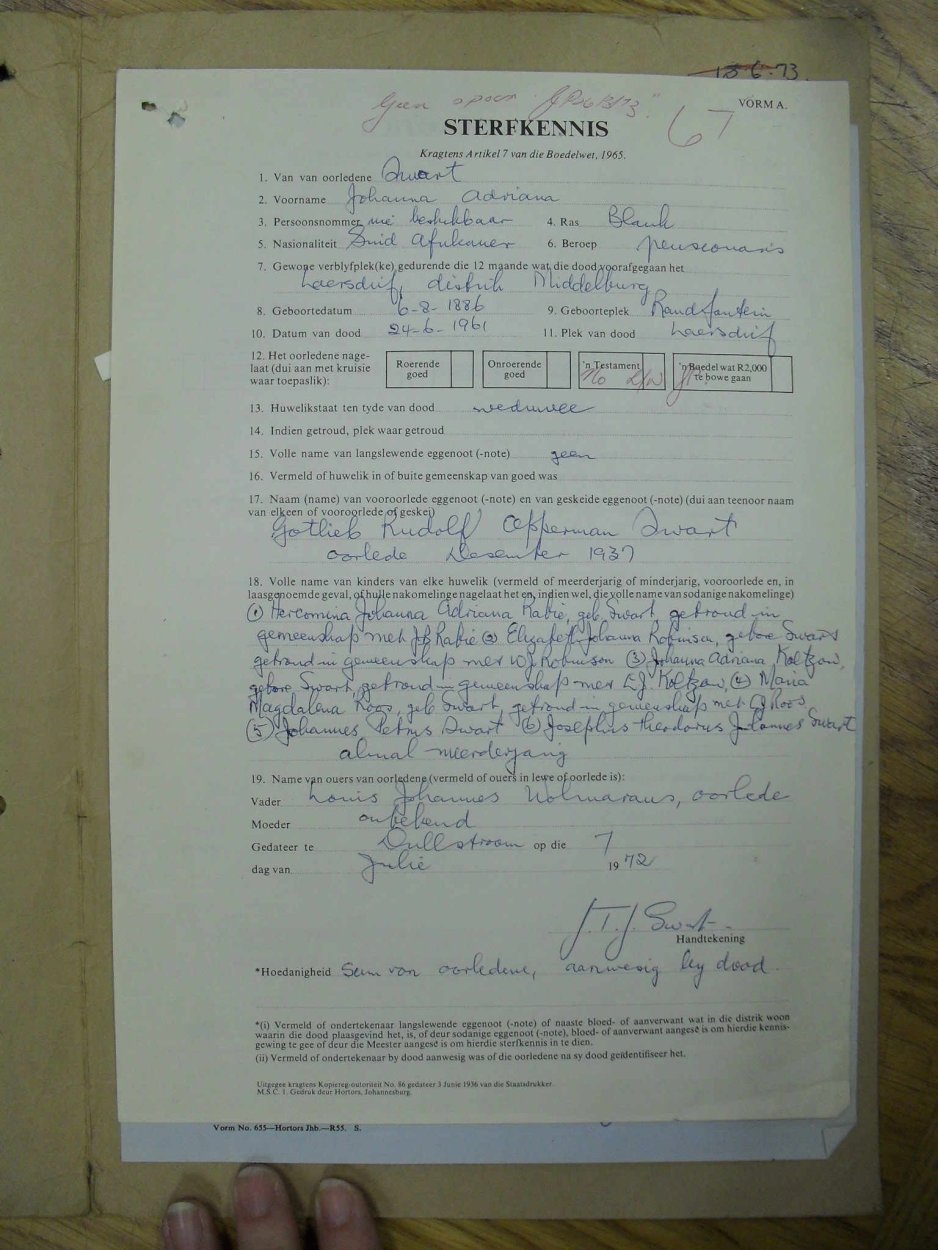 18-6-73
Geen spoor
67
VORM A.
STERFKENNIS
Kragtens Artikel 7 van die Boedelwet, 1965.
1. Van van oorledene Swart
2. Voorname Johanna Adriana
3. Persoonsnommer nie beskikbaar 4. Ras Blank
5. Nasionaliteit Suid Afrikaner 6. Beroep pensionaris
7. Gewone verblyfplek(ke) gedurende die 12 maande wat die dood voorafgegaan het
Laersdrif, distrik Middelburg
8. Geboortedatum 6-8-1886 9. Geboorteplek Randfontein
10. Datum van dood 24-6-1961 11. Plek van dood Laersdrif
12. Het oorledene nage-
laat (dui aan met kruisie
waar toepaslik):
Roerende goed
Onroerende goed
'n Testament
No
'n Boedel wat R2,000 te bowe gaan
13. Huwelikstaat ten tyde van dood weduwee
14. Indien getroud, plek waar getroud
15. Volle name van langslewende eggenoot (-note) geen
16. Vermeld of huwelik in of buite gemeenskap van goed was
17. Naam (name) van vooroorlede eggenoot (-note) en van geskeide eggenoot (-note) (dui aan teenoor naam
van elkeen of vooroorlede of geskei)
Gotlieb Rudolf Opperman Swart
oorlede Desember 1937
18. Volle name van kinders van elke huwelik (vermeld of meerderjarig of minderjarig, vooroorlede en, in
laasgenoemde geval, of hulle nakomelinge nagelaat het en, indien wel, die volle name van sodanige nakomelinge)
(1) Hercomina Johanna Adriana Rabie, geb. Swart getroud in
gemeenskap met J.P. Rabie (2) Elizabeth Johanna Robinson, gebore Swart
getroud in gemeenskap met W.J. Robinson (3) Johanna Adriana Koltzow,
gebore Swart, getroud in gemeenskap met L.J. Koltzow, (4) Maria
Magdalena Roos, geb. Swart, getroud in gemeenskap met G.J. Roos
(5) Johannes Petrus Swart (6) Josephus Theodorus Johannes Swart
almal meerderjarig
19. Name van ouers van oorledene (vermeld of ouers in lewe of oorlede is):
Vader Louis Johannes Wolmarans, oorlede
Moeder onbekend
Gedateer te Dullstroom op die 7
dag van Julie 1972
J.T.J. Swart
Handtekening
*Hoedanigheid Seun van oorledene, aanwesig by dood
*(i) Vermeld of ondertekenaar langslewende eggenoot (-note) of naaste bloed- of aanverwant wat in die distrik woon
waarin die dood plaasgevind het, is, of deur sodanige eggenoot (-note), bloed- of aanverwant aangesê is om hierdie kennis-
gewing te gee of deur die Meester aangesê is om hierdie sterfkennis in te dien.
(ii) Vermeld of ondertekenaar by dood aanwesig was of die oorledene na sy dood geïdentifiseer het.
Uitgegee kragtens Kopiereg-outoriteit No. 86 gedateer 3 Junie 1936 van die Staatsdrukker.
M.S.C. 1. Gedruk deur Hortors, Johannesburg.
Vorm No. 655—Hortors Jhb.—R55. S.